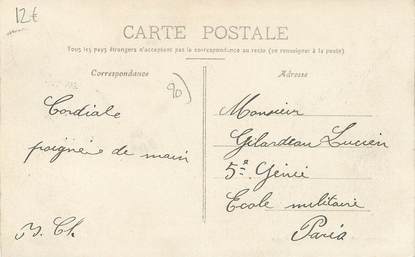 12€
CARTE POSTALE
Tous les pays étrangers n'acceptent pas la correspondance au recto (se renseigner à la poste)
Correspondance
90
Adresse
Cordiale
poignée de main
Monsieur
Gilardeau Lucien
5e Génie
Ecole militaire
Paris